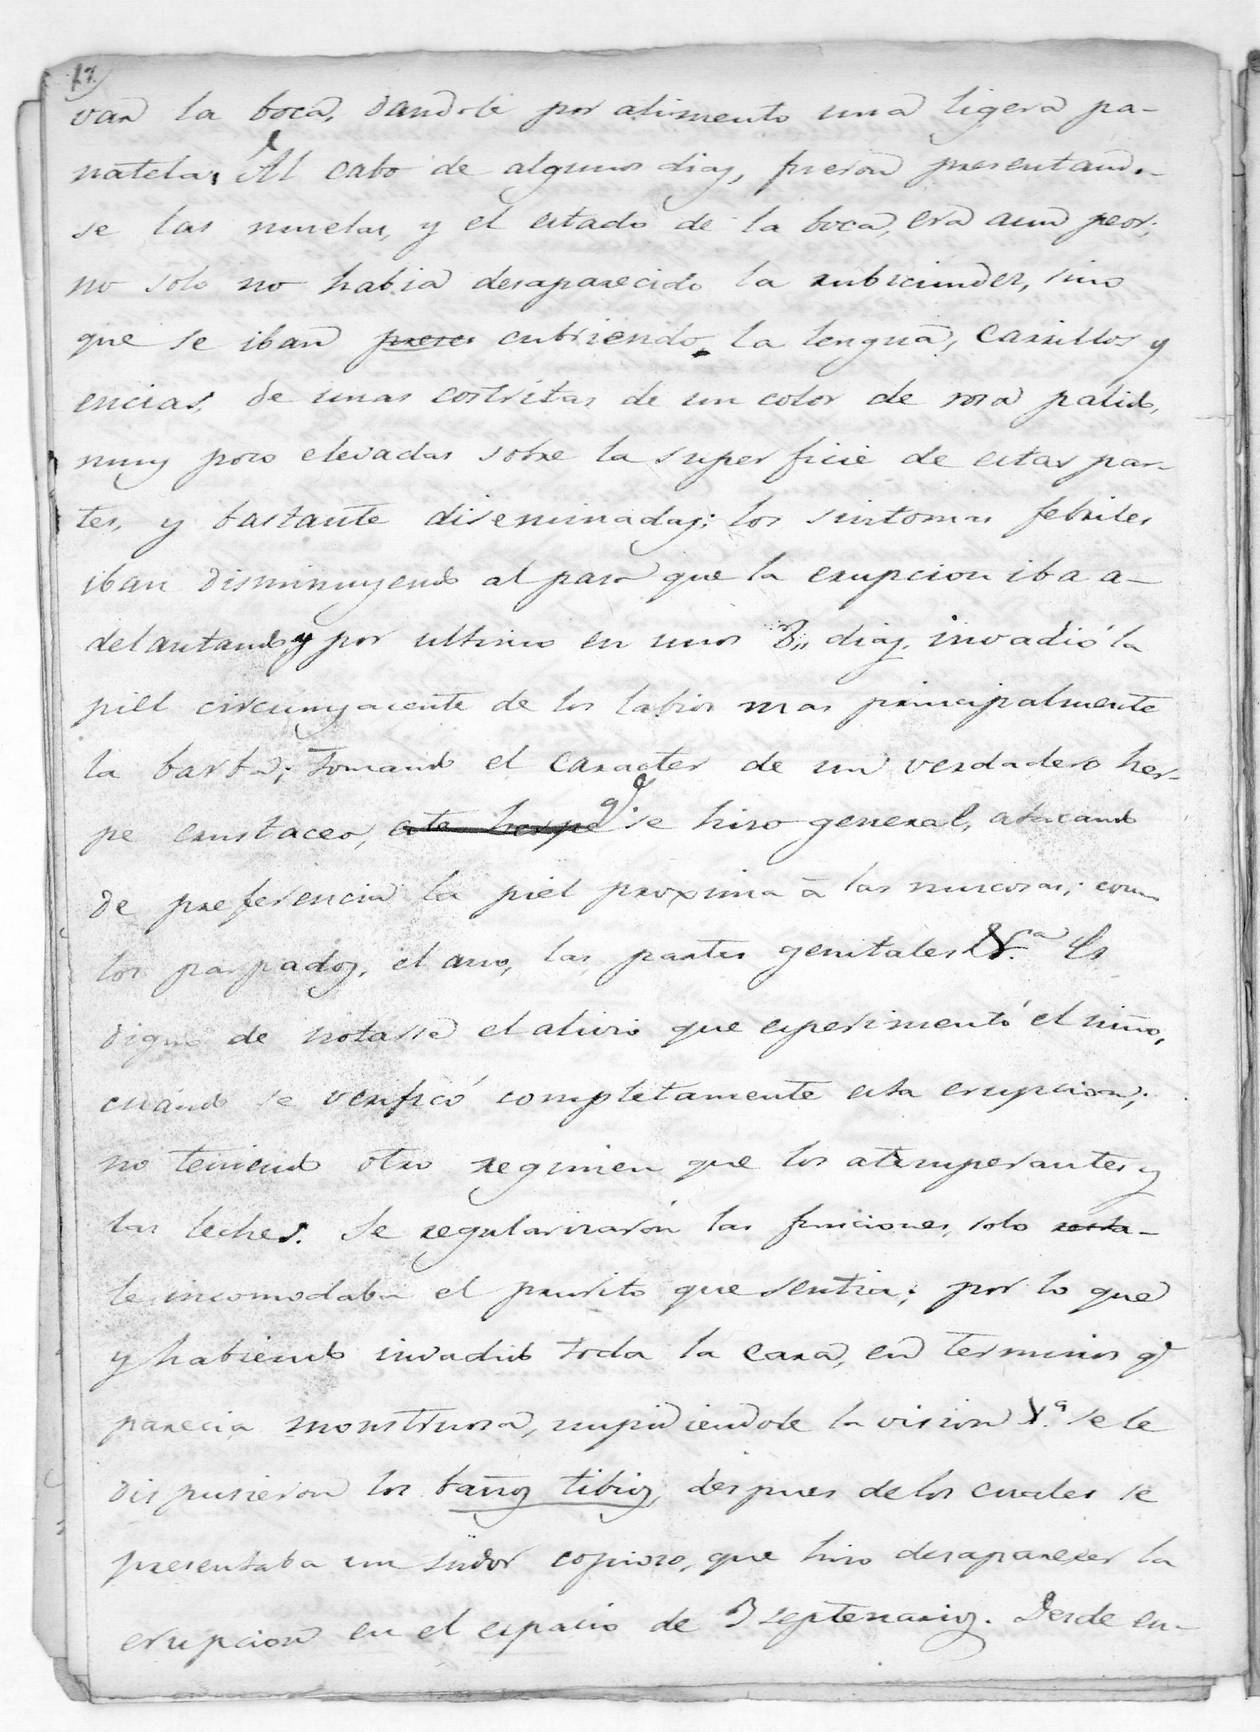 17.
van la boca, dandole por alimento una ligera pa-
natela. Al cabo de algunos dias, fueron presentando-
se las muelas, y el estado de la boca, era aun peor;
no solo no habia desaparecido la rubicundez, sino
que se iban cubriendo la lengua, carrillos y
encias, de unas costritas de un color de rosa palido,
muy poco elevadas sobre la superficie de estas par-
tes, y bastante diseminadas; los sintomas febriles
iban disminuyendo al paso que la erupcion iba a-
delantando y por ultimo en unos 8,, dias, invadió la
piel circunyacente de los labios mas principalmente
la barba; tomando el caracter de un verdadero her-
pe crustaceo, este herpe qe. se hizo general, atacando
de preferencia la piel proxima á las mucosas; como
los parpados, el ano, las partes genitales &.ª Es
digno de notarse el alivio que esperimentó el niño,
cuando se verificó completamente esta erupcion;
no teniendo otro regimen que los atemperantes y
las leches. Se regularizarón las funciones, solo
le incomodaba el prurito que sentia; por lo que
y habiendo invadido toda la cara, en terminos qe
parecia monstruosa, impidiendole la vision &.ª se le
dispusieron los baños tibios, despues de los cuales se
presentaba un sudor copioso, que hizo desaparecer la
erupcion en el espacio de 3 septenarios. Desde en-